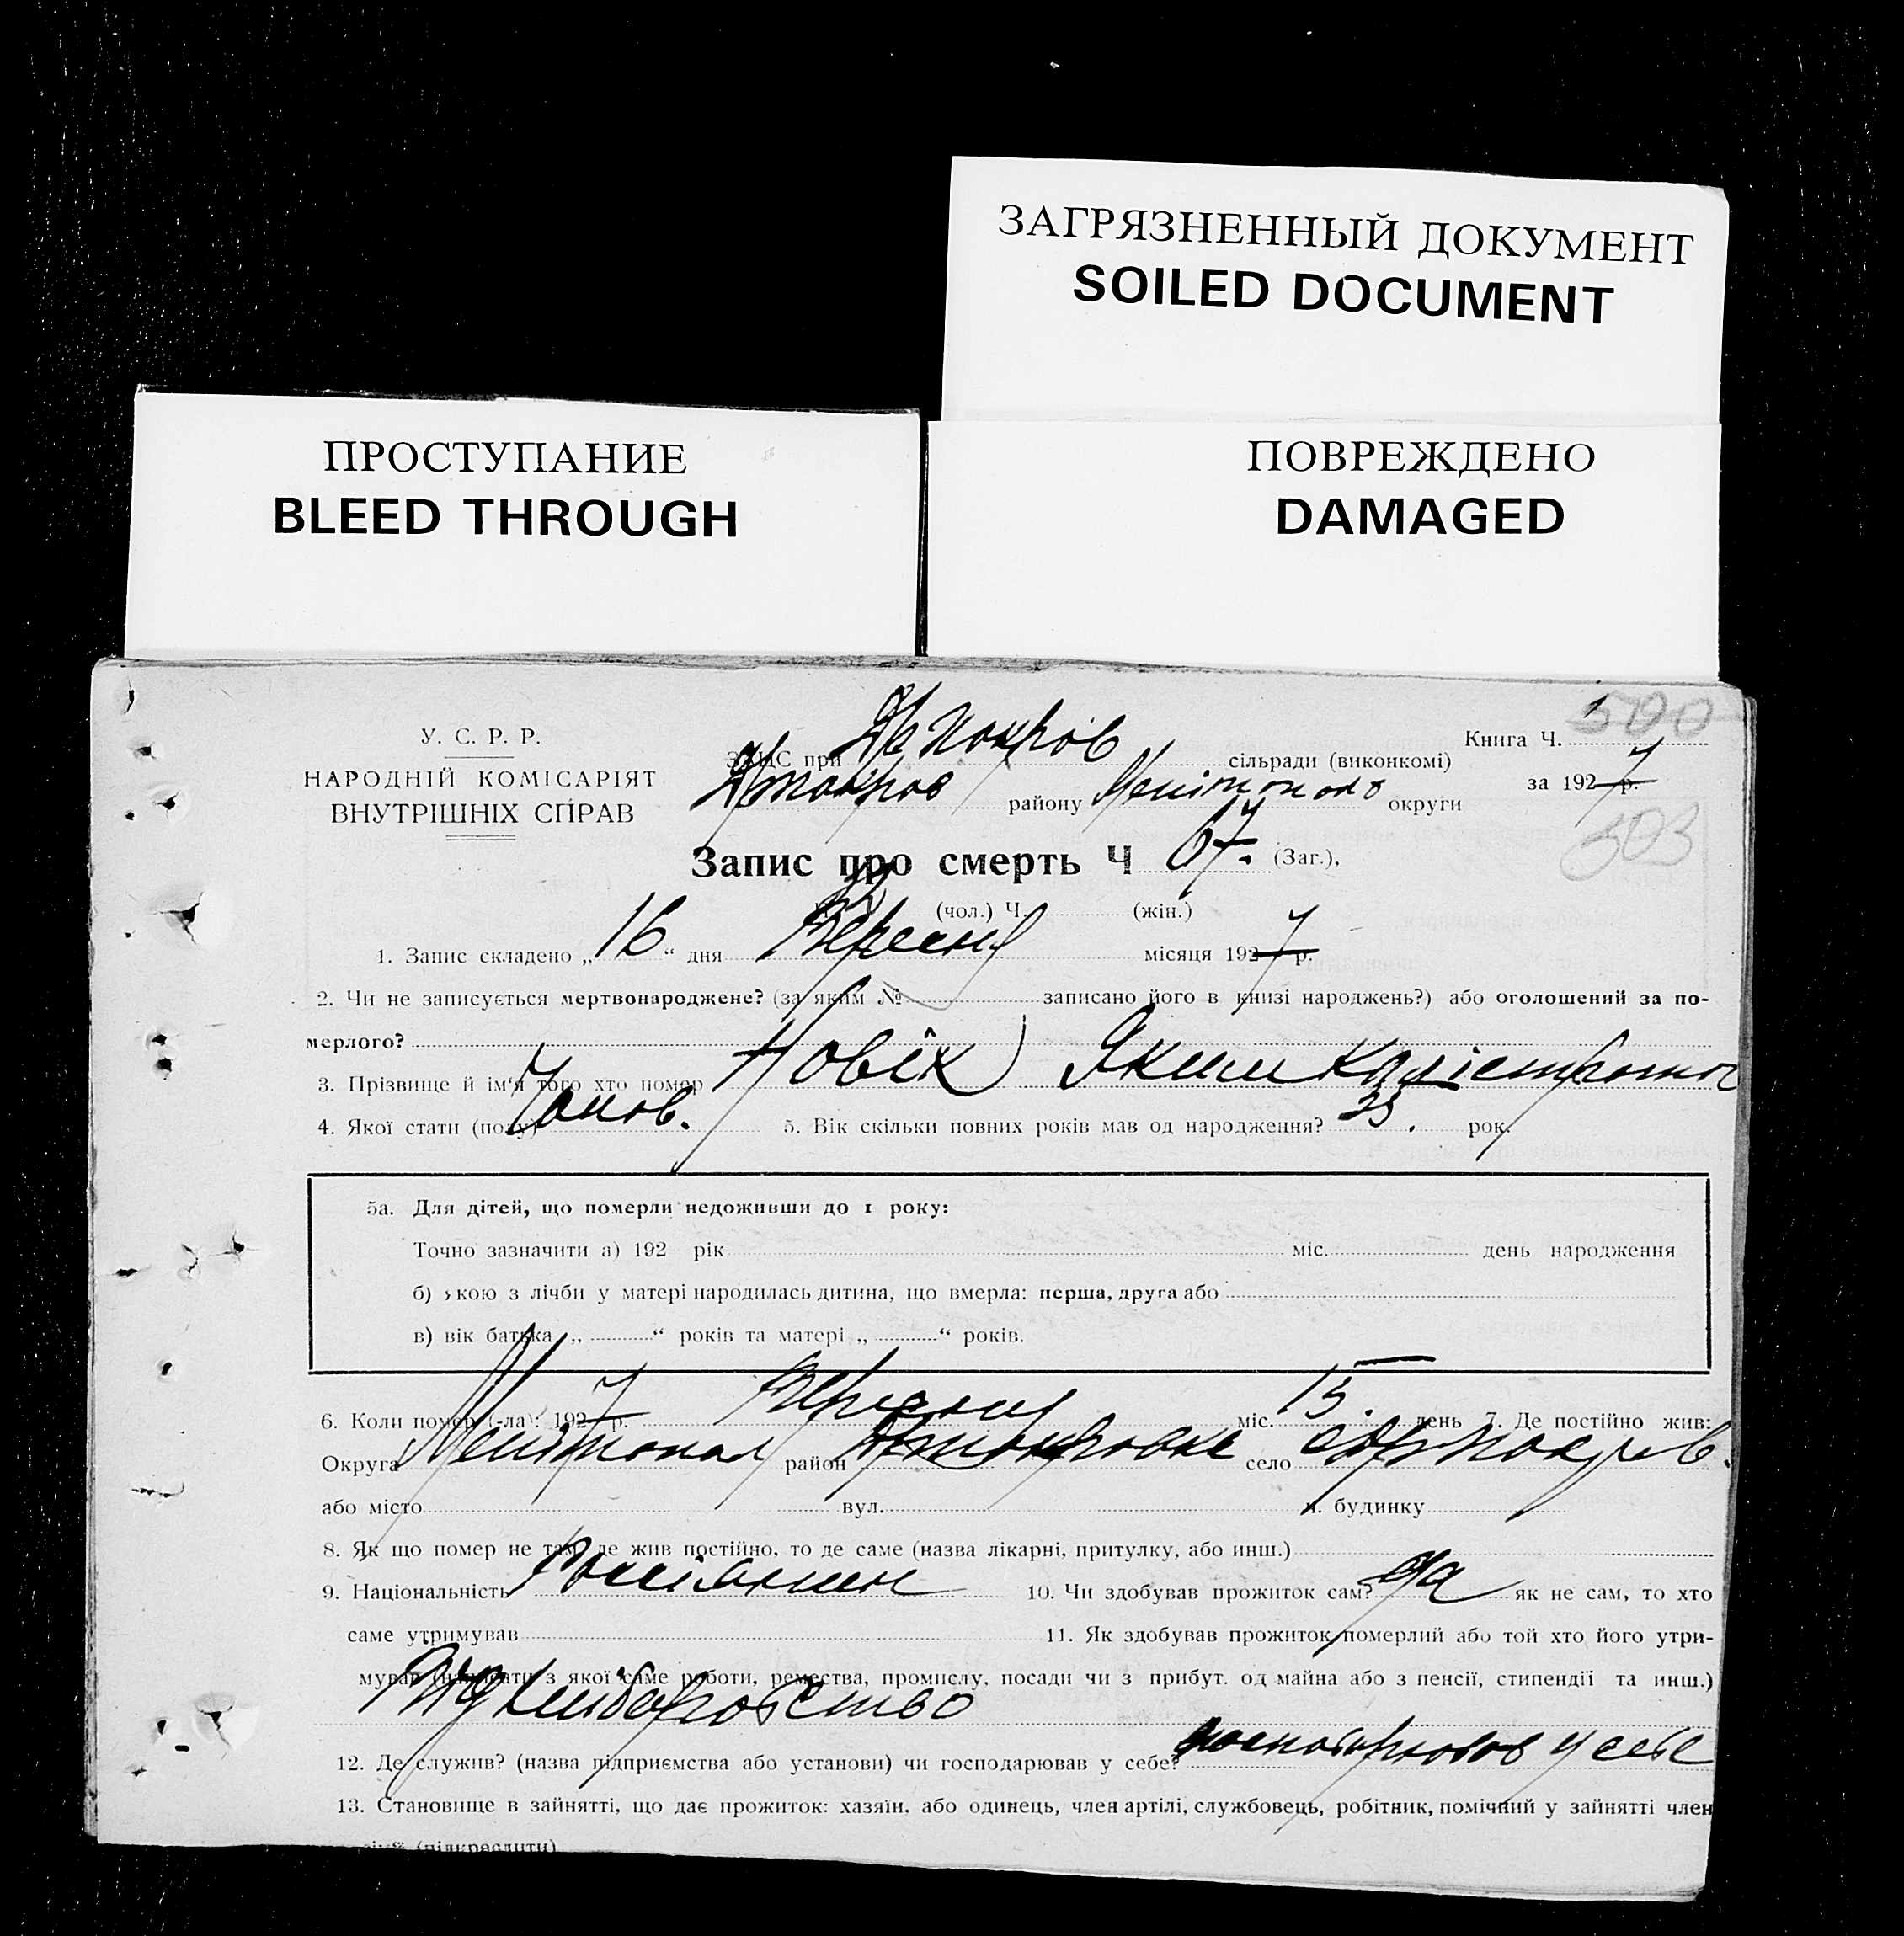 ЗАГРЯЗНЕННЫЙ ДОКУМЕНТ
SOILED DOCUMENT
ПРОСТУПАНИЕ
BLEED THROUGH
ПОВРЕЖДЕНО
DAMAGED
У. С. Р. Р.
НАРОДНІЙ КОМІСАРІЯТ
ВНУТРІШНІХ СПРАВ
ЗАГС при сільради (виконкомі)
району округи
Книга Ч. 500
за 1927 р.
503
Запис про смерть Ч 67. (Заг.),
(чол.) Ч. (жін.)
1. Запис складено „16“ дня Вересня місяця 1927 р.
2. Чи не записується мертвонароджене? (за яким № записано його в книзі народжень?) або оголошений за по-
мерлого?
3. Прізвище й ім'я того хто помер Новік Яким
4. Якої стати (полу) Чолов. 5. Вік скільки повних років мав од народження? рок.
5а. Для дітей, що померли недоживши до 1 року:
Точно зазначити а) 192 рік міс. день народження
б) якою з лічби у матері народилась дитина, що вмерла: перша, друга або
в) вік батька „ “ років та матері „ “ років.
6. Коли помер (-ла): 1927 р. Вересня міс. 15. день 7. Де постійно жив:
Округа район село
або місто вул. н. будинку
8. Як що помер не там, де жив постійно, то де саме (назва лікарні, притулку, або инш.)
9. Національність 10. Чи здобував прожиток сам? да як не сам, то хто
саме утримував 11. Як здобував прожиток померлий або той хто його утри-
мував (написати з якої саме роботи, ремества, промислу, посади чи з прибут. од майна або з пенсії, стипендії та инш.)
12. Де служив? (назва підприємства або установи) чи господарював у себе? у себе
13. Становище в зайнятті, що дає прожиток: хазяїн, або одинець, член артілі, службовець, робітник, помічний у зайнятті член
(підкреслити)